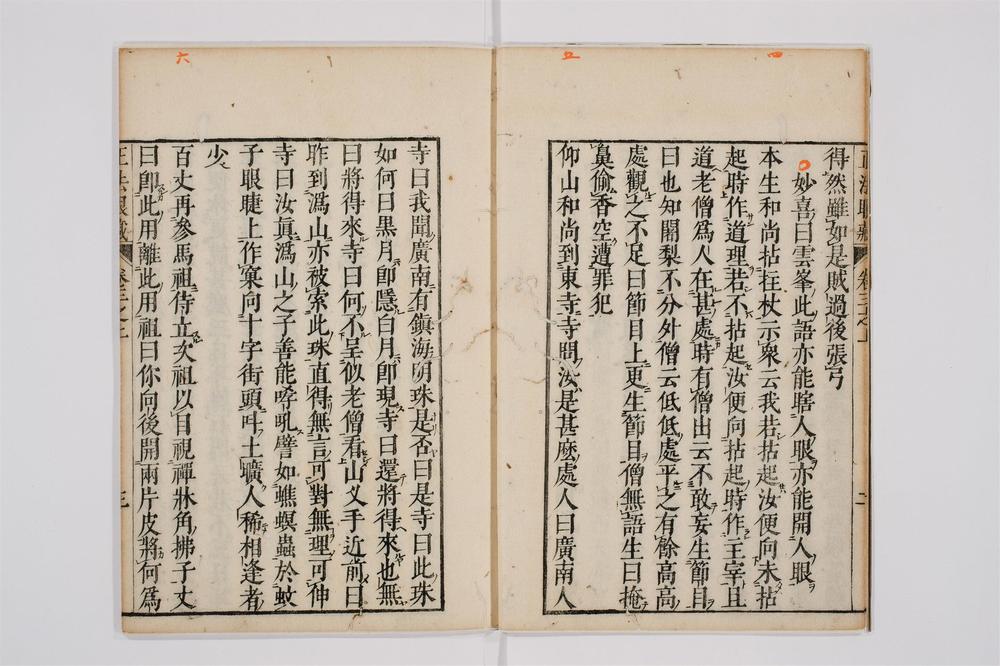 四
五
得然雖如是賊過後張弓
妙喜曰雲峯此語亦能瞎人眼亦能開人眼
本生和尚拈拄杖示衆云我若拈起汝便向未拈
起時作道理若不拈起汝便向拈起時作主宰且
道老僧爲人在甚處時有僧出云不敢妄生節目
曰也知闍梨不分外僧云低低處平之有餘高高
處觀之不足曰節目上更生節目僧無語生曰掩
鼻偷香空遭罪犯
仰山和尚到東寺寺問汝是甚麽處人曰廣南人
六
寺曰我聞廣南有鎮海明珠是否曰是寺曰此珠
如何曰黒月卽隱白月卽現寺曰還將得來也無
曰將得來寺曰何不呈似老僧看山叉手近前曰
昨到潙山亦被索此珠直得無言可對無理可伸
寺曰汝眞潙山之子善能哮吼譬如蟭螟蟲於蚊
子眼睫上作窠向十字街頭呌土曠人稀相逢者
少
百丈再參馬祖侍立次祖以目視禪牀角拂子丈
曰卽此用離此用祖曰你向後開兩片皮將何爲